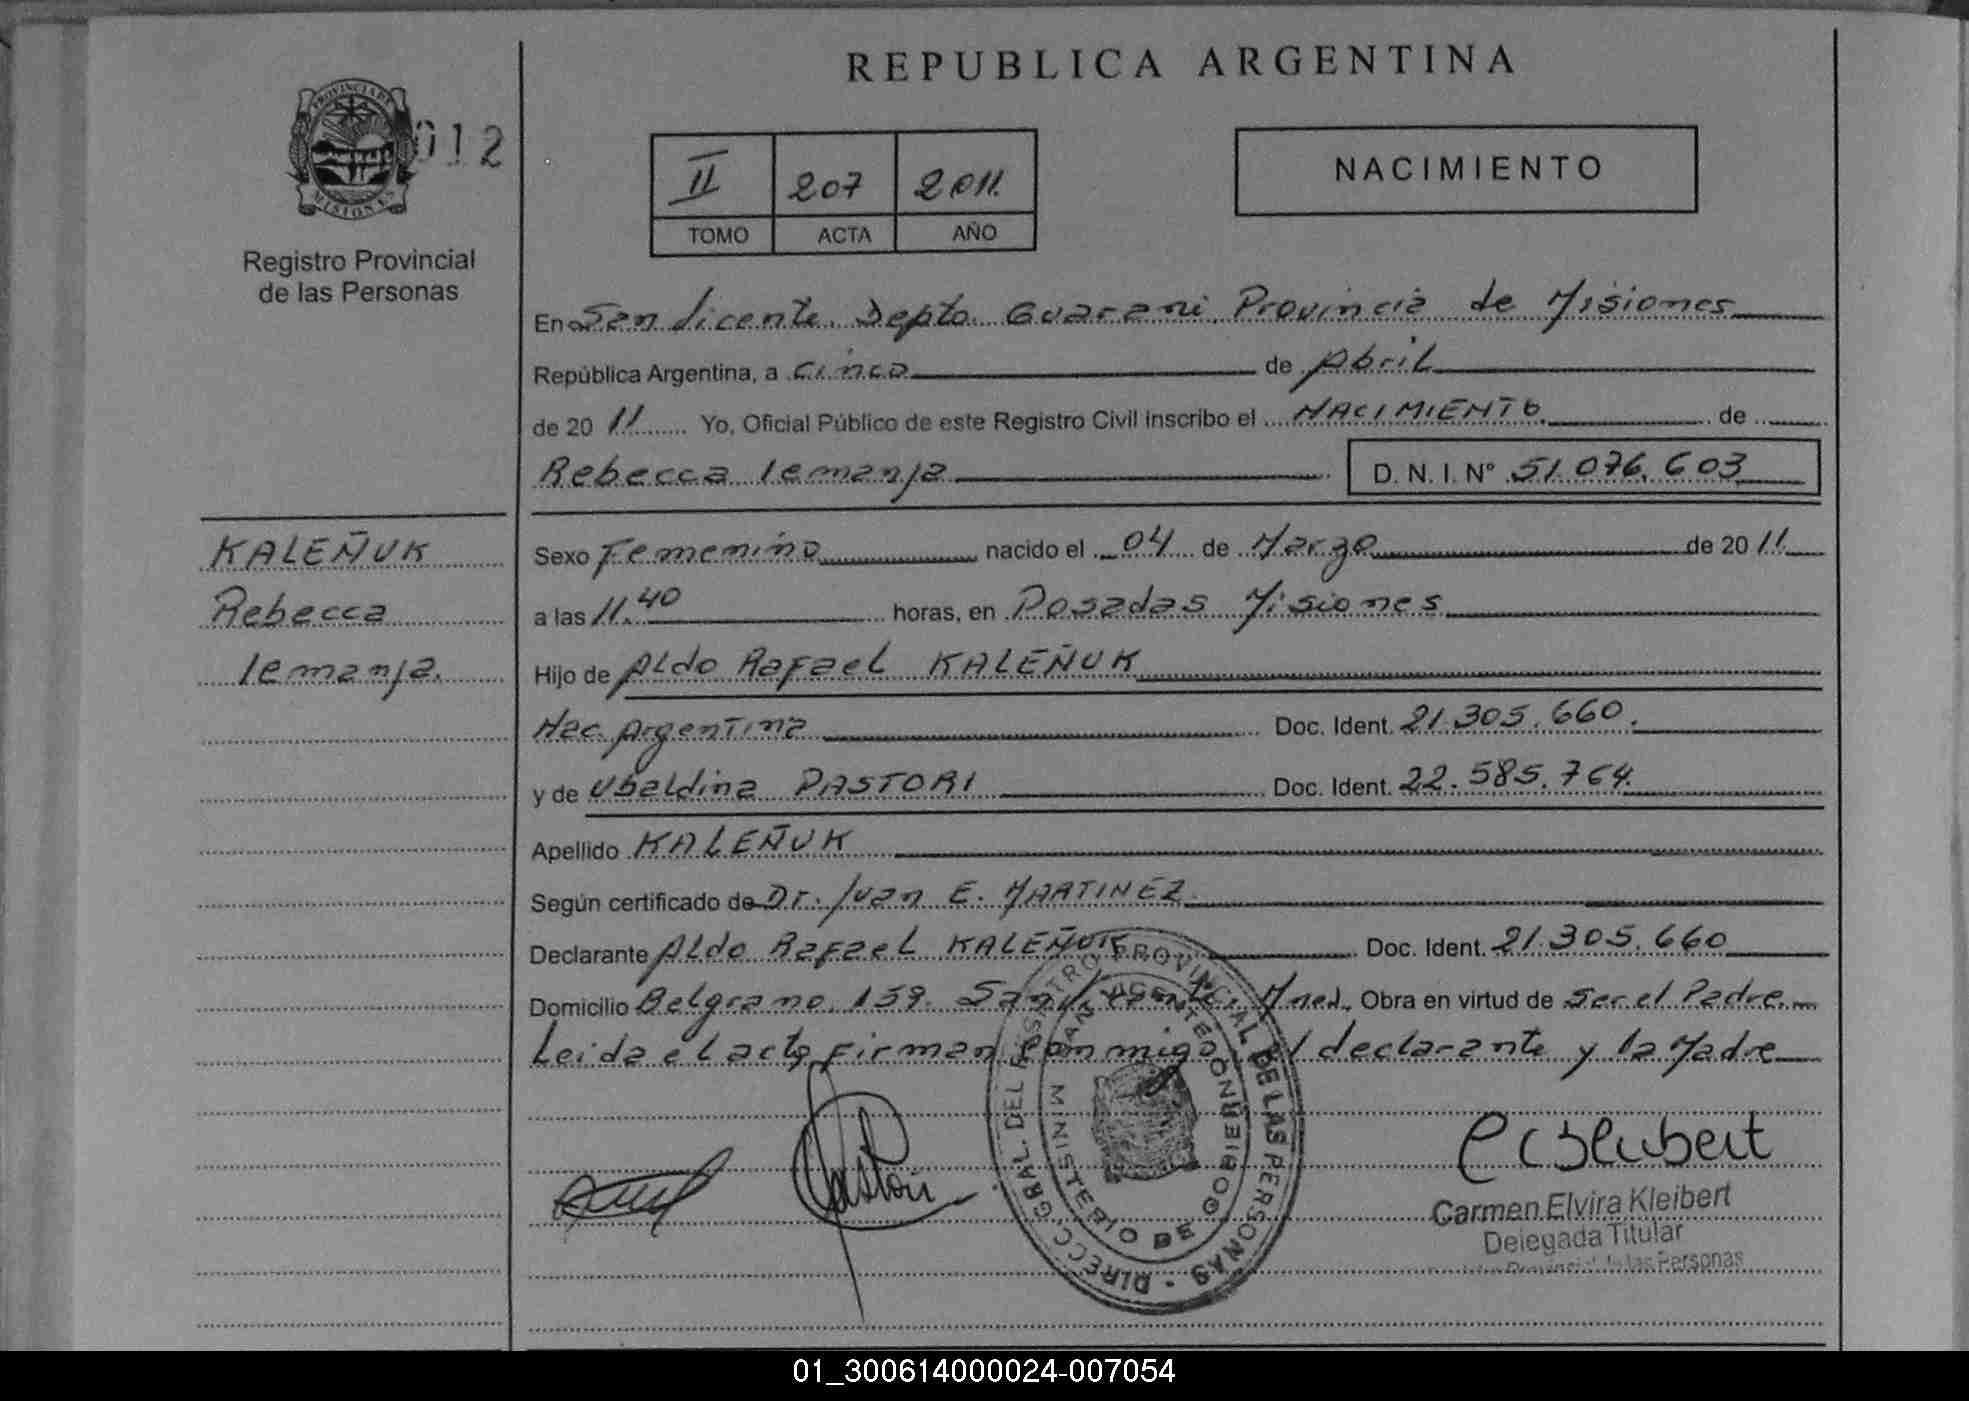 REPUBLICA ARGENTINA
PROVINCIA DE
MISIONES
012
Registro Provincial
de las Personas
II 207 2011.
TOMO ACTA AÑO
NACIMIENTO
En San Vicente. Depto. Guarani. Provincia de Misiones
República Argentina, a cinco de Abril
de 20 11 Yo, Oficial Público de este Registro Civil inscribo el NACIMIENTO. de
Rebecca Iemanja D. N. I. N° 51.076.603
KALEÑUK
Rebecca
Iemanja.
Sexo Femenino nacido el 04 de Marzo de 20 11
a las 11.40 horas, en Posadas Misiones
Hijo de Aldo Rafael KALEÑUK
Nac. Argentina Doc. Ident. 21.305.660.
y de Ubaldina PASTORI Doc. Ident. 22.585.764.
Apellido KALEÑUK
Según certificado de Dr. Juan E. MARTINEZ.
Declarante Aldo Rafael KALEÑUK Doc. Ident. 21.305.660
Domicilio Belgrano 159. San Vicente, Mnes. Obra en virtud de Ser el Padre.
Leida el acta firman conmigo el declarante y la Madre
DIRECC. GRAL. DEL REGISTRO PROVINCIAL DE LAS PERSONAS
MINISTERIO DE GOBIERNO
SAN VICENTE
Pastori
Carmen Elvira Kleibert
Delegada Titular
de las Personas
01_300614000024-007054